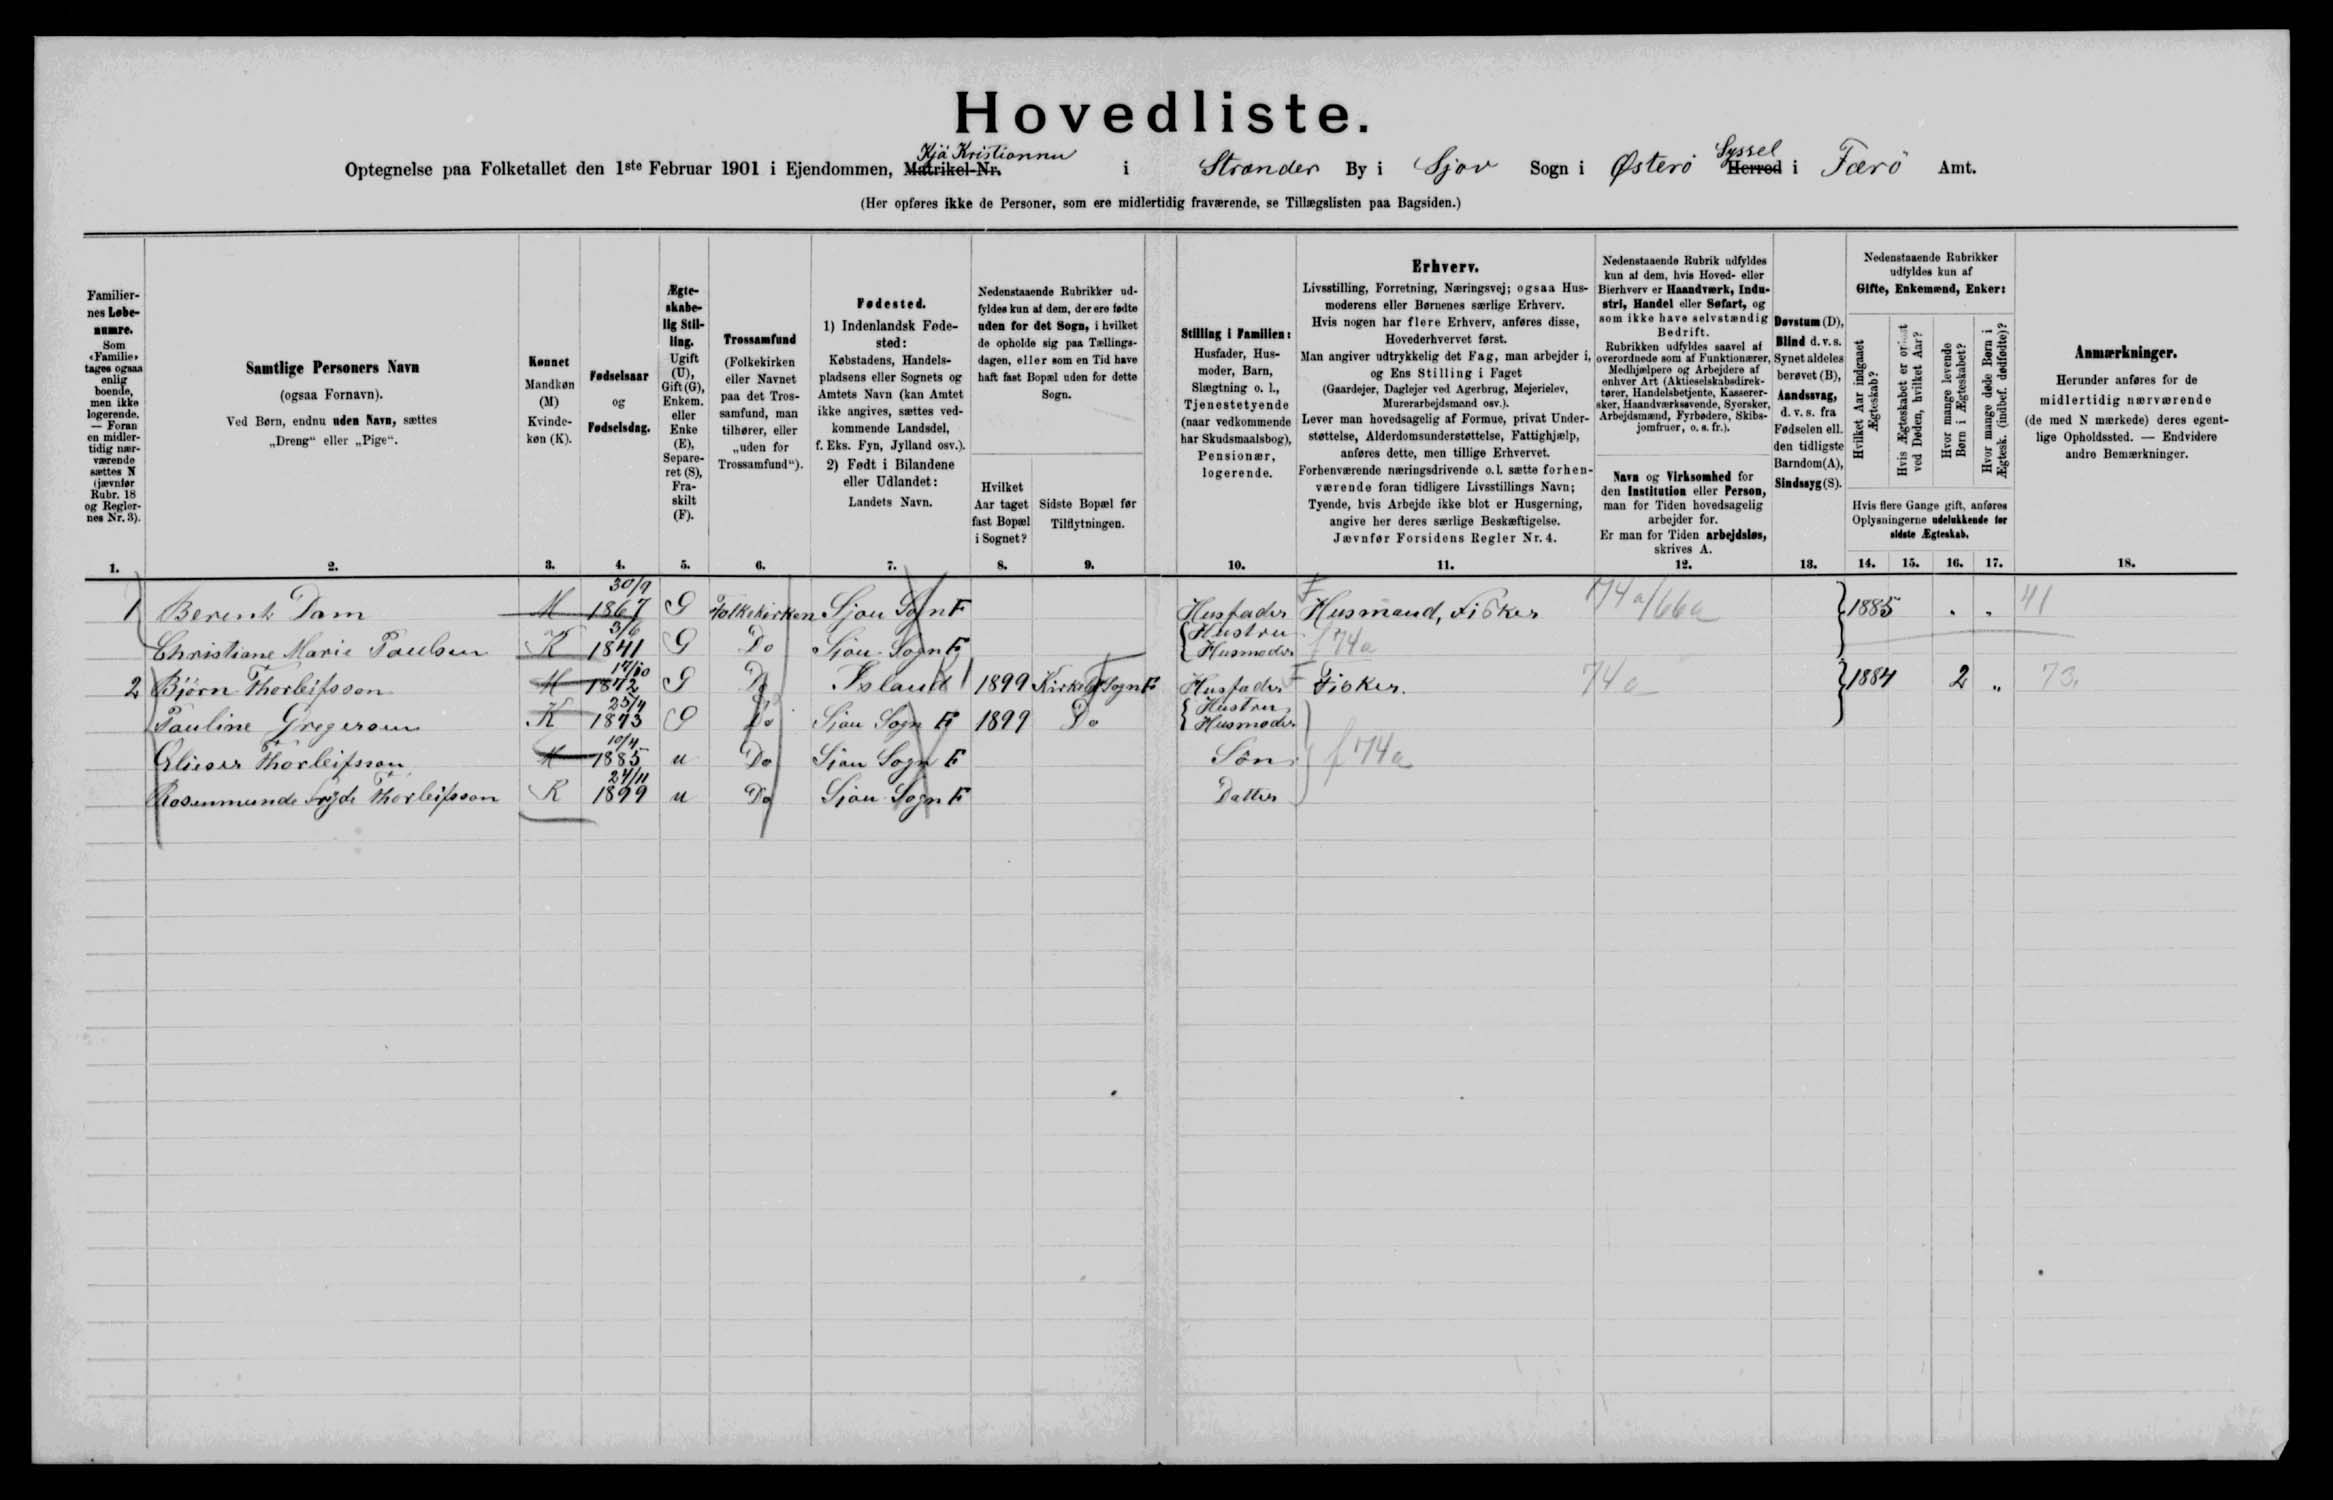 Hovedliste.
Kjá Kristiannu
Syssel
Optegnelse paa Folketallet den 1ste Februar 1901 i Ejendommen, Matrikel-Nr. i Strander By i Sjov Sogn i Østerö Herred i Færö Amt.
(Her opføres ikke de Personer, som ere midlertidig fraværende, se Tillægslisten paa Bagsiden.)
Familier-
nes Løbe-
numre.
Som
«Familie»
tages ogsaa
enlig
boende,
men ikke
logerende.
— Foran
en midler-
tidig nær-
værende
sættes N
(jævnfør
Rubr. 18
og Regler-
nes Nr. 3).
Samtlige Personers Navn
(ogsaa Fornavn).
Ved Børn, endnu uden Navn, sættes
„Dreng“ eller „Pige“.
Kønnet
Mandkøn
(M)
Kvinde-
køn (K).
Fødselsaar
og
Fødselsdag.
Ægte-
skabe-
lig Stil-
ling.
Ugift
(U),
Gift (G),
Enkem.
eller
Enke
(E),
Separe-
ret (S),
Fra-
skilt
(F).
Trossamfund
(Folkekirken
eller Navnet
paa det Tros-
samfund, man
tilhører, eller
„uden for
Trossamfund“).
Fødested.
1) IndenlandskFøde-
sted:
Købstadens, Handels-
pladsens eller Sognets og
Amtets Navn (kan Amtet
ikke angives, sættes ved-
kommende Landsdel,
f. Eks. Fyn, Jylland osv.).
2) Født i Bilandene
eller Udlandet:
Landets Navn.
Nedenstaaende Rubrikker ud-
fyldes kun af dem, der ere fødte
uden for det Sogn, i hvilket
de opholde sig paa Tællings-
dagen, eller som en Tid have
haft fast Bopæl uden for dette
Sogn.
Hvilket
Aar taget
fast Bopæl
i Sognet?
Sidste Bopæl før
Tilflytningen.
Stilling i Familien:
Husfader, Hus-
moder, Barn,
Slægtning o. l.,
Tjenestetyende
(naar vedkommende
har Skudsmaalsbog),
Pensionær,
logerende.
Erhverv.
Livsstilling, Forretning, Næringsvej; ogsaa Hus-
moderens eller Børnenes særlige Erhverv.
Hvis nogen har flere Erhverv, anføres disse,
Hovederhvervet først.
Man angiver udtrykkelig det Fag, man arbejder i,
og Ens Stilling i Faget
(Gaardejer, Daglejer ved Agerbrug, Mejerielev,
Murerarbejdsmand osv.).
Lever man hovedsagelig af Formue, privat Under-
støttelse, Alderdomsunderstøttelse, Fattighjælp,
anføres dette, men tillige Erhvervet.
Forhenværende næringsdrivende o.l. sætte forhen-
værende foran tidligere Livsstillings Navn;
Tyende, hvis Arbejde ikke blot er Husgerning,
angive her deres særlige Beskæftigelse.
Jævnfør Forsidens Regler Nr. 4.
Nedenstaaende Rubrik udfyldes
kun af dem, hvis Hoved- eller
Bierhverv er Haandværk, Indu-
stri, Handel eller Søfart, og
som ikke have selvstændig
Bedrift.
Rubrikken udfyldes saavel af
overordnede som af Funktionærer,
Medhjælpere og Arbejdere af
enhver Art (Aktieselskabsdirek-
tører, Handelsbetjente, Kasserer-
sker, Haandværkssvende, Syersker,
Arbejdsmænd, Fyrbødere, Skibs-
jomfruer, o. s. fr.).
Navn og Virksomhed for
den Institution eller Person,
man for Tiden hovedsagelig
arbejder for.
Er man for Tiden arbejdsløs,
skrives A.
Døvstum (D),
Blind d. v. s.
Synet aldeles
berøvet (B),
Aandssvag,
d. v. s. fra
Fødselen ell.
den tidligste
Barndom (A),
Sindssyg (S).
Nedenstaaende Rubrikker
udfyldes kun af
Gifte, Enkemænd, Enker:
Hvilket Aar indgaaet
Ægteskab?
Hvis Ægteskabet er opløst
ved Døden, hvilket Aar?
Hvor mange levende
Børn i Ægteskabet?
Hvor mange døde Børn i
Ægtesk. (indbef. dødfødte)?
Hvis flere Gange gift, anføres
Oplysningerne udelukkende for
sidste Ægteskab.
Anmærkninger.
Herunder anføres for de
midlertidig nærværende
(de med N mærkede) deres egent-
lige Opholdssted. — Endvidere
andre Bemærkninger.
1. 2. 3. 4. 5. 6. 7. 8. 9. 10. 11. 12. 13. 14. 15. 16. 17. 18.
1 Berent Dam M 30/9 1867 G Folkekirken Sjou Sogn F Husfader Husmand, Fisker 74a/66a 1885 . . 41
Christiane Marie Poulsen K 3/6 1841 G Do Sjou Sogn F Hustru Husmoder f 74a
2 Björn Thorleifsson M 17/10 1842 G Do Island 1899 Kirkebø Sogn F Husfader Fisker. 74a 1884 2 „ 73.
Pauline Gregersen K 25/4 1843 G Do Sjou Sogn F 1899 Do Hustru Husmoder
Elieser Thorleifsson M 10/4 1885 u Do Sjou Sogn F Sön f 74a
Rosenmunde Thorleifsson K 24/11 1899 u Do Sjou Sogn F Datter